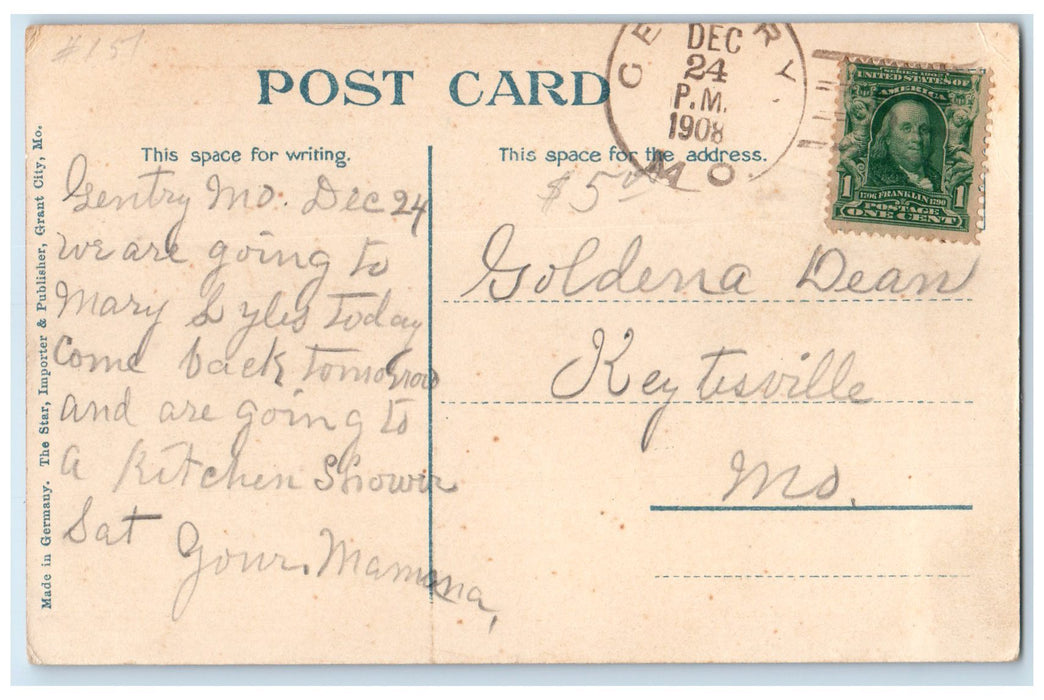 #151
POST CARD
GE RY
DEC
24
P.M.
1908
MO.
SERIES 1902
UNITED STATES OF
AMERICA
1 1
1706 FRANKLIN 1790
POSTAGE
ONE CENT
Made in Germany. The Star, Importer & Publisher, Grant City, Mo.
This space for writing.
Gentry Mo. Dec 24
we are going to
Mary Lyles today
Come back tomorrow
and are going to
a Kitchen Shower
Sat
Your Mamma,
This space for the address.
$5
Goldena Dean
Keytesville
Mo.